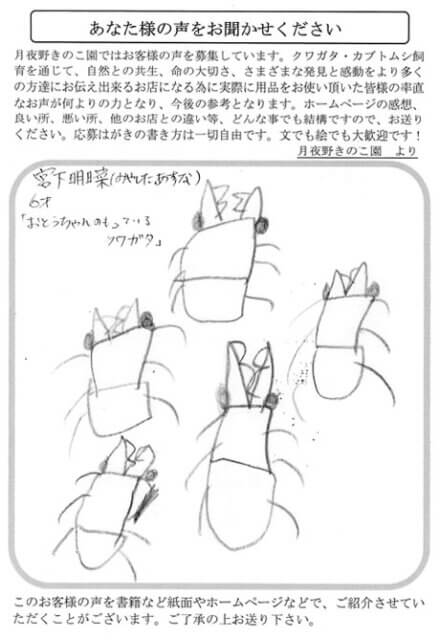 あなた様の声をお聞かせください
月夜野きのこ園ではお客様の声を募集しています。クワガタ・カブトムシ飼
育を通じて、自然との共生、命の大切さ、さまざまな発見と感動をより多く
の方達にお伝え出来るお店になる為に実際に用品をお使い頂いた皆様の率直
なお声が何よりの力となり、今後の参考となります。ホームページの感想、
良い所、悪い所、他のお店との違い等、どんな事でも結構ですので、お送り
ください。応募はがきの書き方は一切自由です。文でも絵でも大歓迎です！
月夜野きのこ園　より
宮下明日菜(みやしたあすな)
6才
「おとうちゃんのもっている
クワガタ」
このお客様の声を書籍など紙面やホームページなどで、ご紹介させてい
ただくことがございます。ご了承の上お送り下さい。